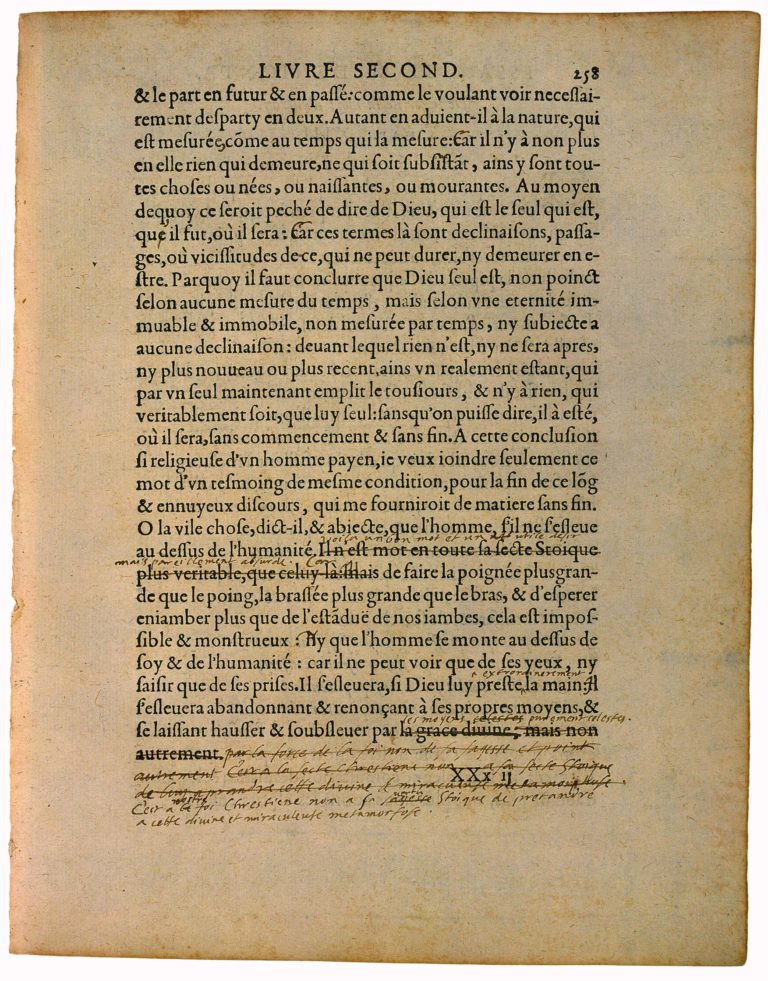 LIVRE SECOND. 258
& le part en futur & en passé: comme le voulant voir necessai-
rement desparty en deux. Autant en aduient-il à la nature, qui
est mesurée, cõme au temps qui la mesure: Car il n'y à non plus
en elle rien qui demeure, ne qui soit subsistãt, ains y sont tou-
tes choses ou nées, ou naissantes, ou mourantes. Au moyen
dequoy ce seroit peché de dire de Dieu, qui est le seul qui est,
que il fut, où il sera: Car ces termes là sont declinaisons, passa-
ges, où vicissitudes de-ce, qui ne peut durer, ny demeurer en e-
stre. Parquoy il faut conclurre que Dieu seul est, non poinct
selon aucune mesure du temps, mais selon vne eternité im-
muable & immobile, non mesurée par temps, ny subiecte a
aucune declinaison: deuant lequel rien n'est, ny ne sera apres,
ny plus nouueau ou plus recent, ains vn realement estant, qui
par vn seul maintenant emplit le tousiours, & n'y à rien, qui
veritablement soit, que luy seul: sansqu'on puisse dire, il à esté,
où il sera, sans commencement & sans fin. A cette conclusion
si religieuse d'vn homme payen, ie veux ioindre seulement ce
mot d'vn tesmoing de mesme condition, pour la fin de ce lõg
& ennuyeux discours, qui me fourniroit de matiere sans fin.
O la vile chose, dict-il, & abiecte, que l'homme, s'il ne s'esleue
voila un bon mot et un utile desir
au dessus de l'humanité. Il n'est mot en toute sa secte Stoique
mais pareillement absurde. Car
plus veritable, que celuy-là: Mais de faire la poignée plusgran-
de que le poing, la brassée plus grande que le bras, & d'esperer
eniamber plus que de l'estãduë de nos iambes, cela est impos-
sible & monstrueux: Ny que l'homme se monte au dessus de
soy & de l'humanité: car il ne peut voir que de ses yeux, ny
saisir que de ses prises. Il s'esleuera, si Dieu luy preste
extrordinerement
la main: Il
s'esleuera abandonnant & renonçant à ses propres moyens, &
ses moyens celestes purement celestes.
se laissant hausser & soubsleuer par la grace diuine; mais non
autrement. par la force de la foi non de la sagesse et point
autrement C'est à la secte Chrestiene non a sa secte Stoique
XXx ij
de divine & miraculeuse metamorfose.
C'est a nostre foi Chrestiene non a sa Stoique de pretandre
a cette divine et miraculeuse metamorfose.